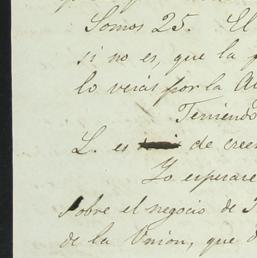 Somos 25. El
si no es, que la
lo verás por la
Teniendo
L. es de creer
Yo esperaré
sobre el negocio de
de la Union, que